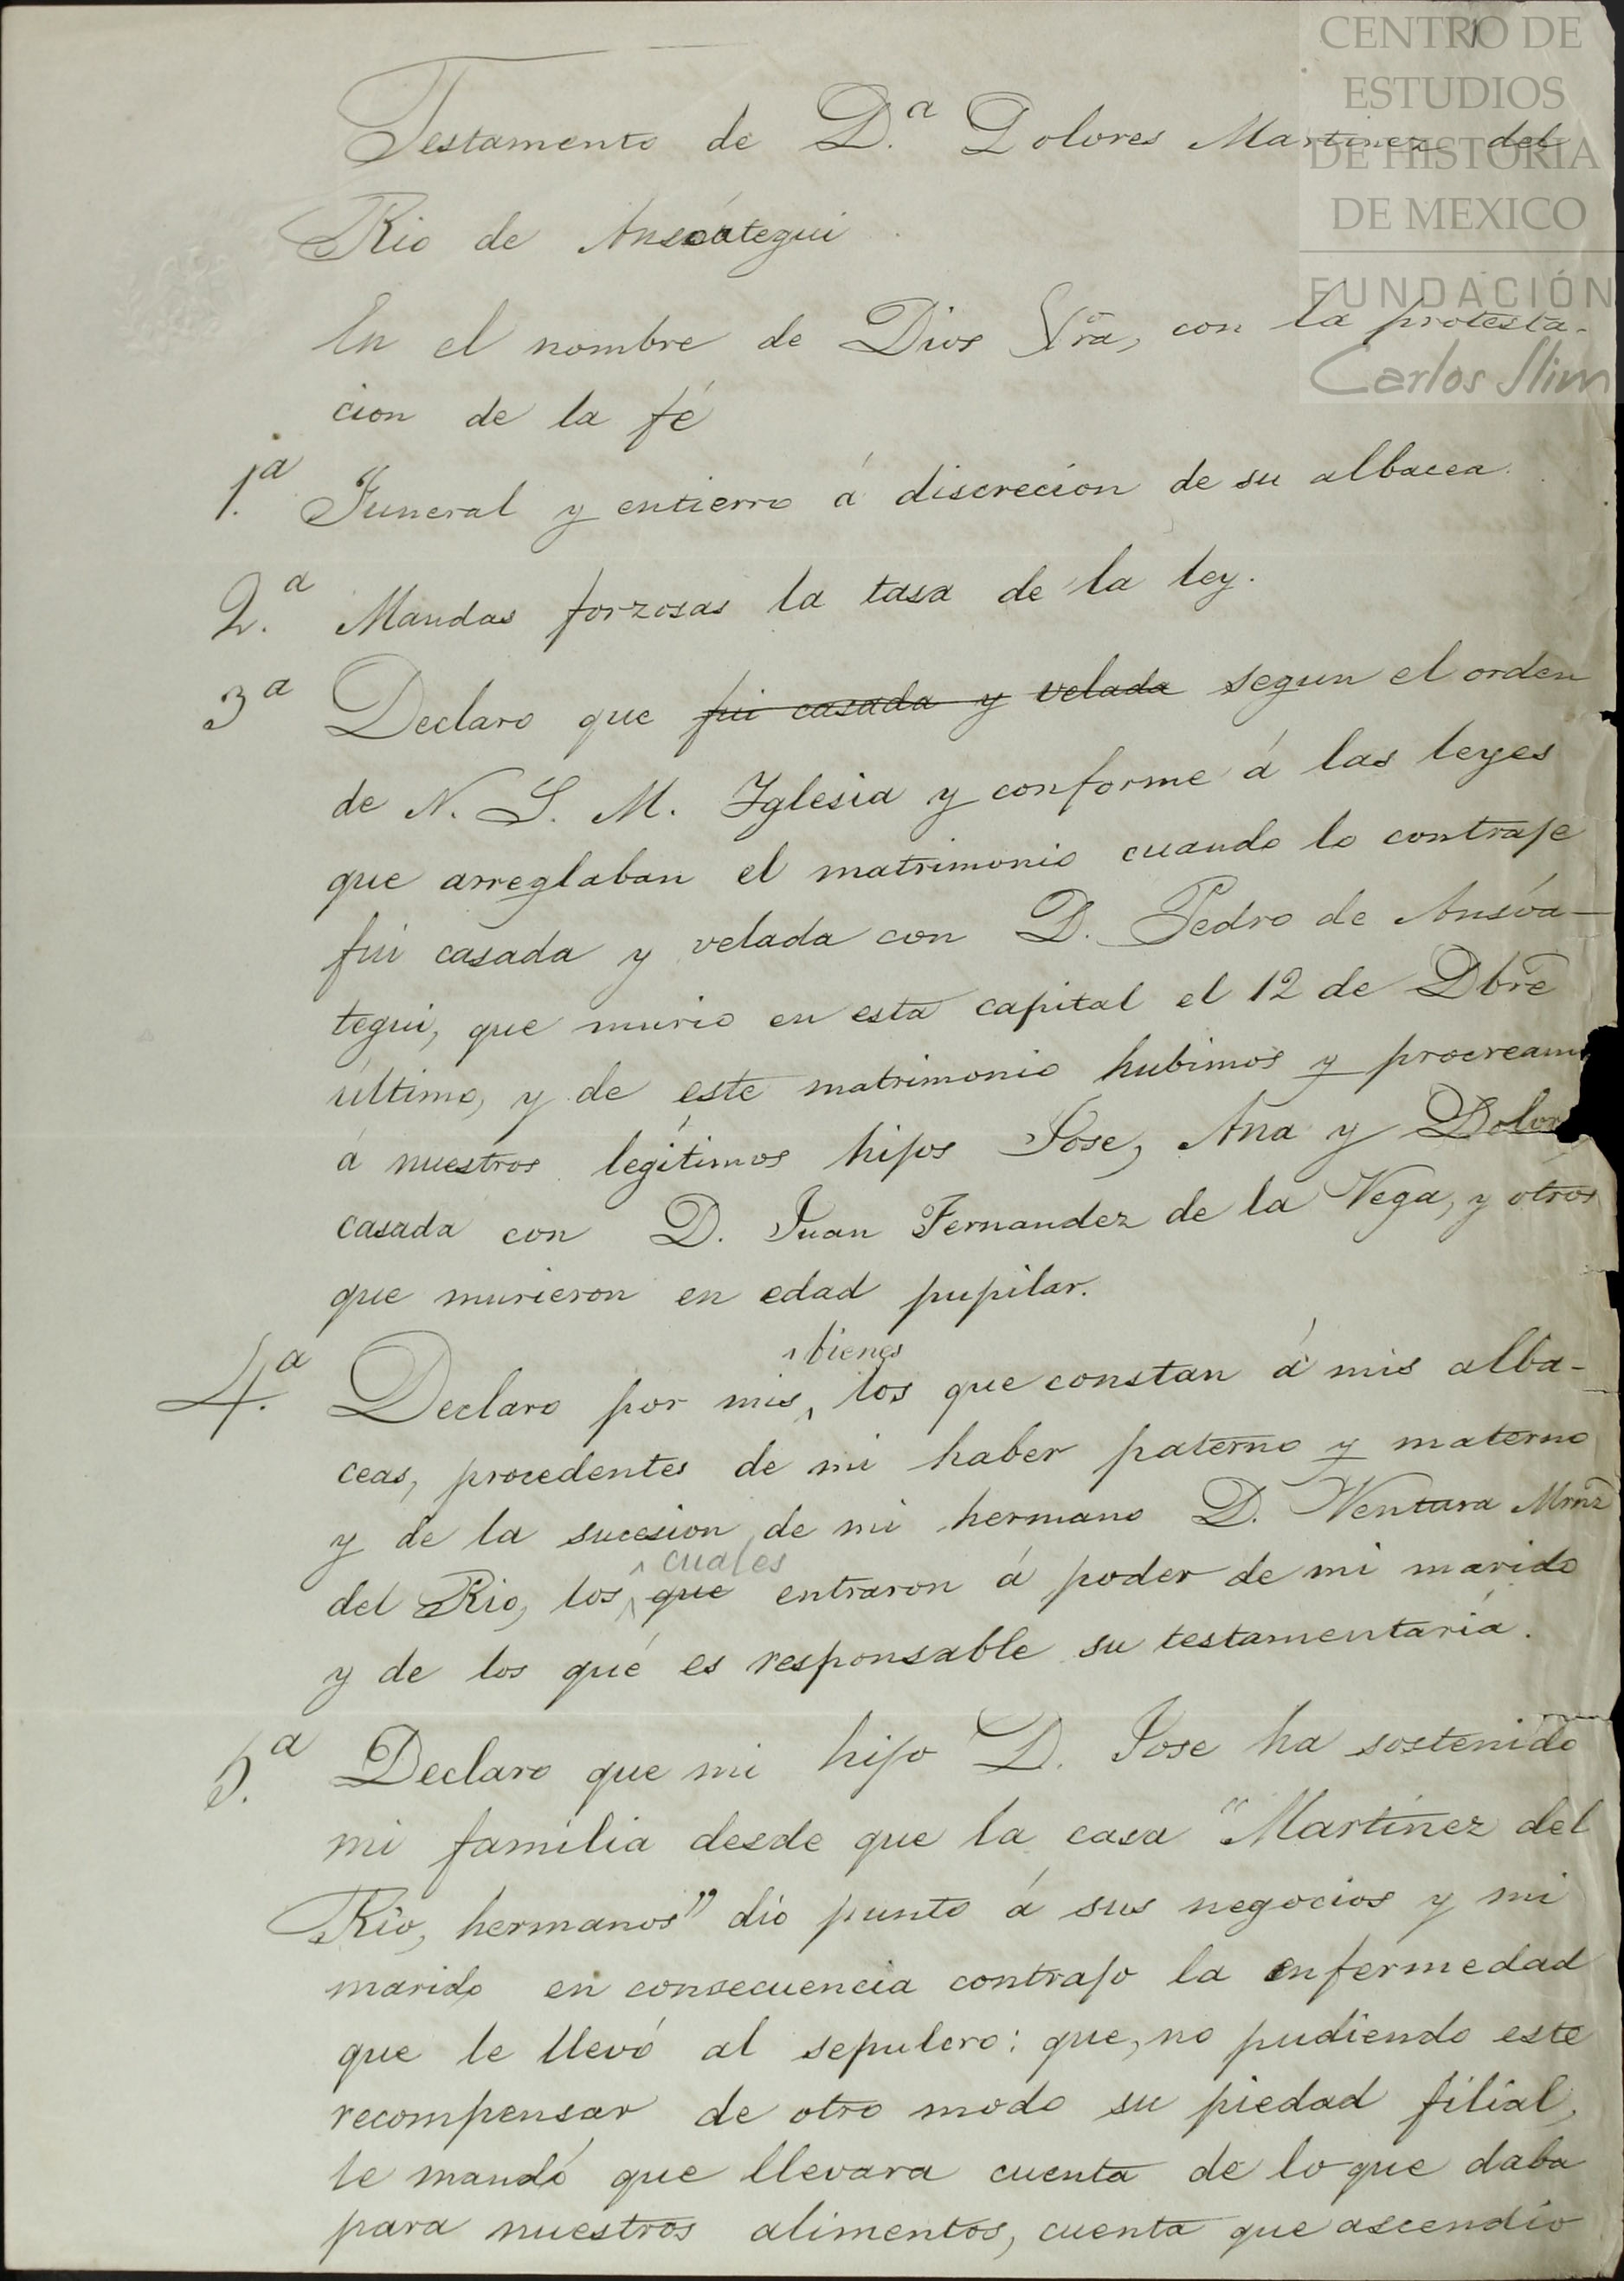 CENTRO DE
ESTUDIOS
DE HISTORIA
DE MEXICO
FUNDACIÓN
Carlos Slim
Testamento de D.ª Dolores Martinez del
Rio de Ansoátegui
En el nombre de Dios Ntra, con la protesta-
cion de la fé
1.ª Funeral y entierro á discrecion de su albacea.
2.ª Mandas forzosas la tasa de la ley.
3ª Declaro que fui casada y velada segun el orden
de N. S. M. Yglesia y conforme á las leyes
que arreglaban el matrimonio cuando lo contraje
fui casada y velada con D. Pedro de Ansóa-
tegui, que murio en esta capital el 12 de Dbre
último, y de este matrimonio hubimos y procream
á nuestros legítimos hijos Jose, Ana y Dolor
casada con D. Juan Fernandez de la Vega, y otros
que murieron en edad pupilar.
bienes
4.ª Declaro por mis los que constan á mis alba-
ceas, procedentes de mi haber paterno y materno
y de la sucesion de mi hermano D. Ventura Mrnz
cuales
del Rio, los que entraron á poder de mi marido
y de los qué es responsable su testamentaría.
5.ª Declaro que mi hijo D. Jose ha sostenido
mi familia desde que la casa "Martínez del
Río, hermanos" dió punto á sus negocios y mi
marido en consecuencia contrajo la enfermedad
que le llevó al sepulcro: que, no pudiendo este
recompensar de otro modo su piedad filial,
le mandó que llevara cuenta de lo que daba
para nuestros alimentos, cuenta que ascendío